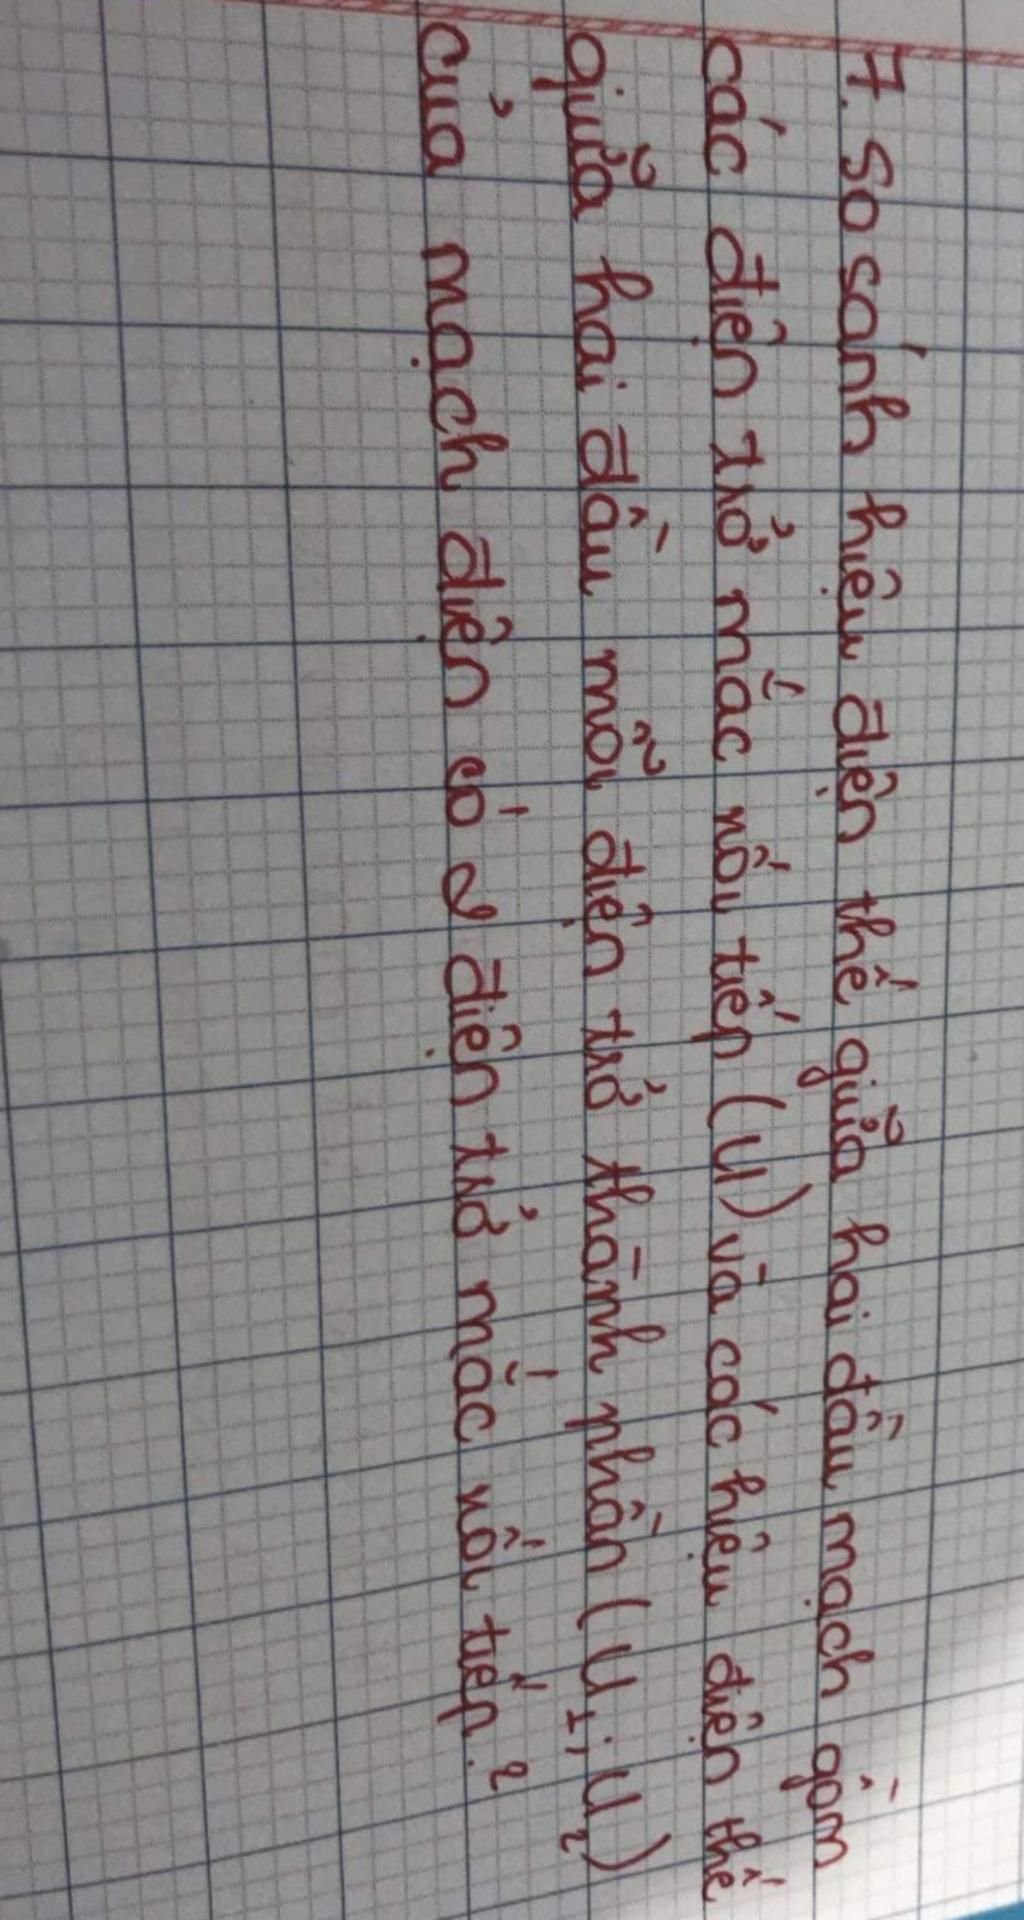 7. so sánh hiệu điện thế giữa hai đầu mạch gồm
các điện trở mắc nối tiếp (U) và các hiệu điện thế
giữa hai đầu mỗi điện trở thành phần (U1; U2)
của mạch điện có 2 điện trở mắc nối tiếp.?